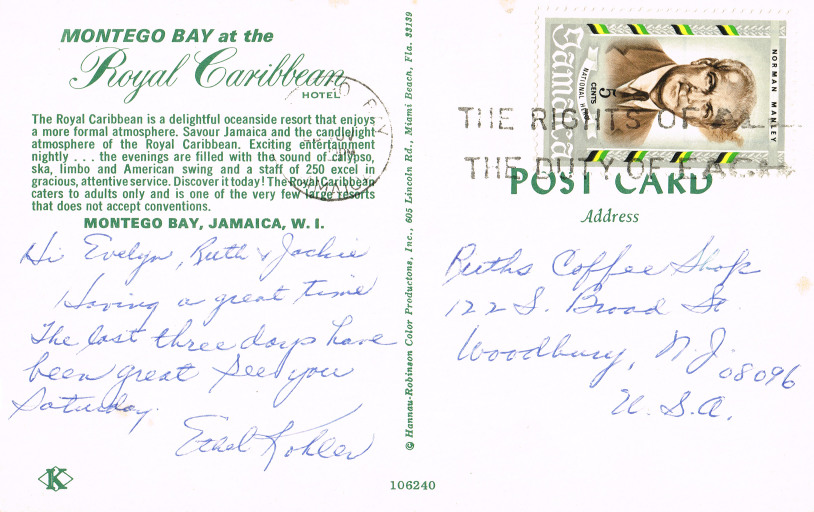 MONTEGO BAY at the
Royal Caribbean
HOTEL
The Royal Caribbean is a delightful oceanside resort that enjoys
a more formal atmosphere. Savour Jamaica and the candlelight
atmosphere of the Royal Caribbean. Exciting entertainment
nightly . . . the evenings are filled with the sound of calypso,
ska, limbo and American swing and a staff of 250 excel in
gracious, attentive service. Discover it today! The Royal Caribbean
caters to adults only and is one of the very few large resorts
that does not accept conventions.
MONTEGO BAY, JAMAICA, W. I.
Hi Evelyn, Ruth & Jackie
Having a great time
The last three days have
been great See you
Saturday.
Ethel Kohler
K
© Hannau-Robinson Color Productons, Inc., 605 Lincoln Rd., Miami Beach, Fla. 33139
106240
Jamaica
NATIONAL HERO
5 CENTS
NORMAN MANLEY
THE RIGHTS OF ALL
THE DUTY OF EACH
POST CARD
Address
Ruths Coffee Shop
122 S. Broad St.
Woodbury, N.J.
08096
U.S.A.